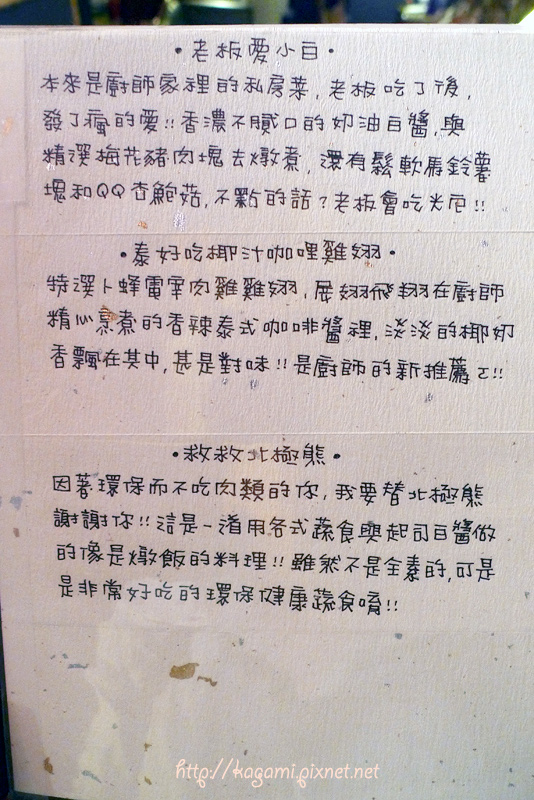 •老板愛小白•
本來是廚師家裡的私房菜,老板吃了後,
發了瘋的愛!!香濃不膩口的奶油白醬,與
精選梅花豬肉塊去燉煮,還有鬆軟馬鈴薯
塊和QQ杏鮑菇,不點的話?老板會吃光克!!
•泰好吃椰汁咖哩雞翅•
特選卜蜂電宰肉雞雞翅,展翅飛翔在廚師
精心熬煮的香辣泰式咖啡醬裡,淡淡的椰奶
香飄在其中,甚是對味!!是廚師的新推薦ㄛ!!
•救救北極熊•
因著環保而不吃肉類的你,我要替北極熊
謝謝你!!這是一道用各式蔬食與起司白醬做
的像是燉飯的料理!!雖然不是全素的,可是
是非常好吃的環保健康蔬食唷!!
http://kagami.pixnet.net